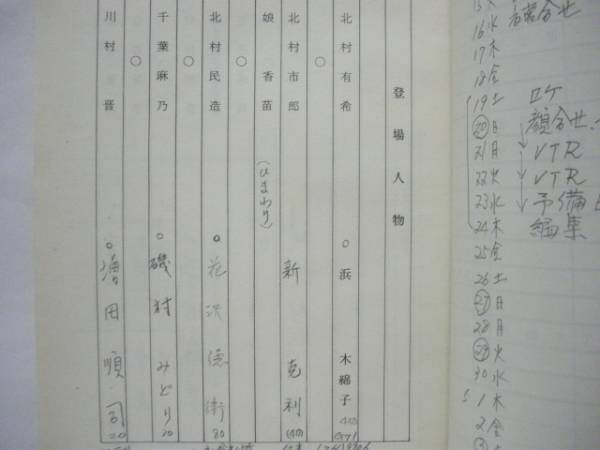 登場人物
北村有希 ○浜 木綿子
○
北村市郎 新 克利
娘 香苗 (ひまわり)
○
北村民造 ○花沢 徳衛 80
○
千葉麻乃 ○磯村 みどり 30
○
川村晋 ○増田 順司 20
16 水
17 木
18 金
19 土 ロケ
⑳ 日 顔合せ
21 月 VTR
22 火 VTR
23 水 予備
24 木 編集
25 金
26 土
㉗ 日
28 月
㉙ 火
30 水
1 木
2 金